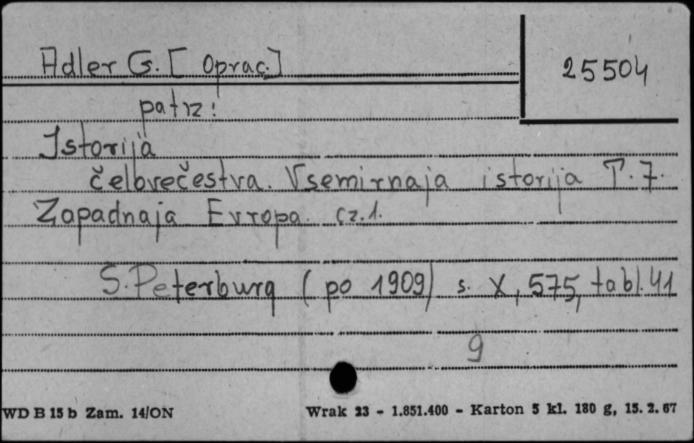 Adler G. [oprac.]
25504
patrz:
Istorija
čelovečestva. Vsemirnaja istorija T. 7.
Zapadnaja Evropa. cz. 1.
S. Peterburg (po 1909) s. X, 575, tabl. 41
9
WD B 15 b Zam. 14/ON
Wrak 23 - 1.851.400 - Karton 5 kl. 180 g, 15. 2. 67